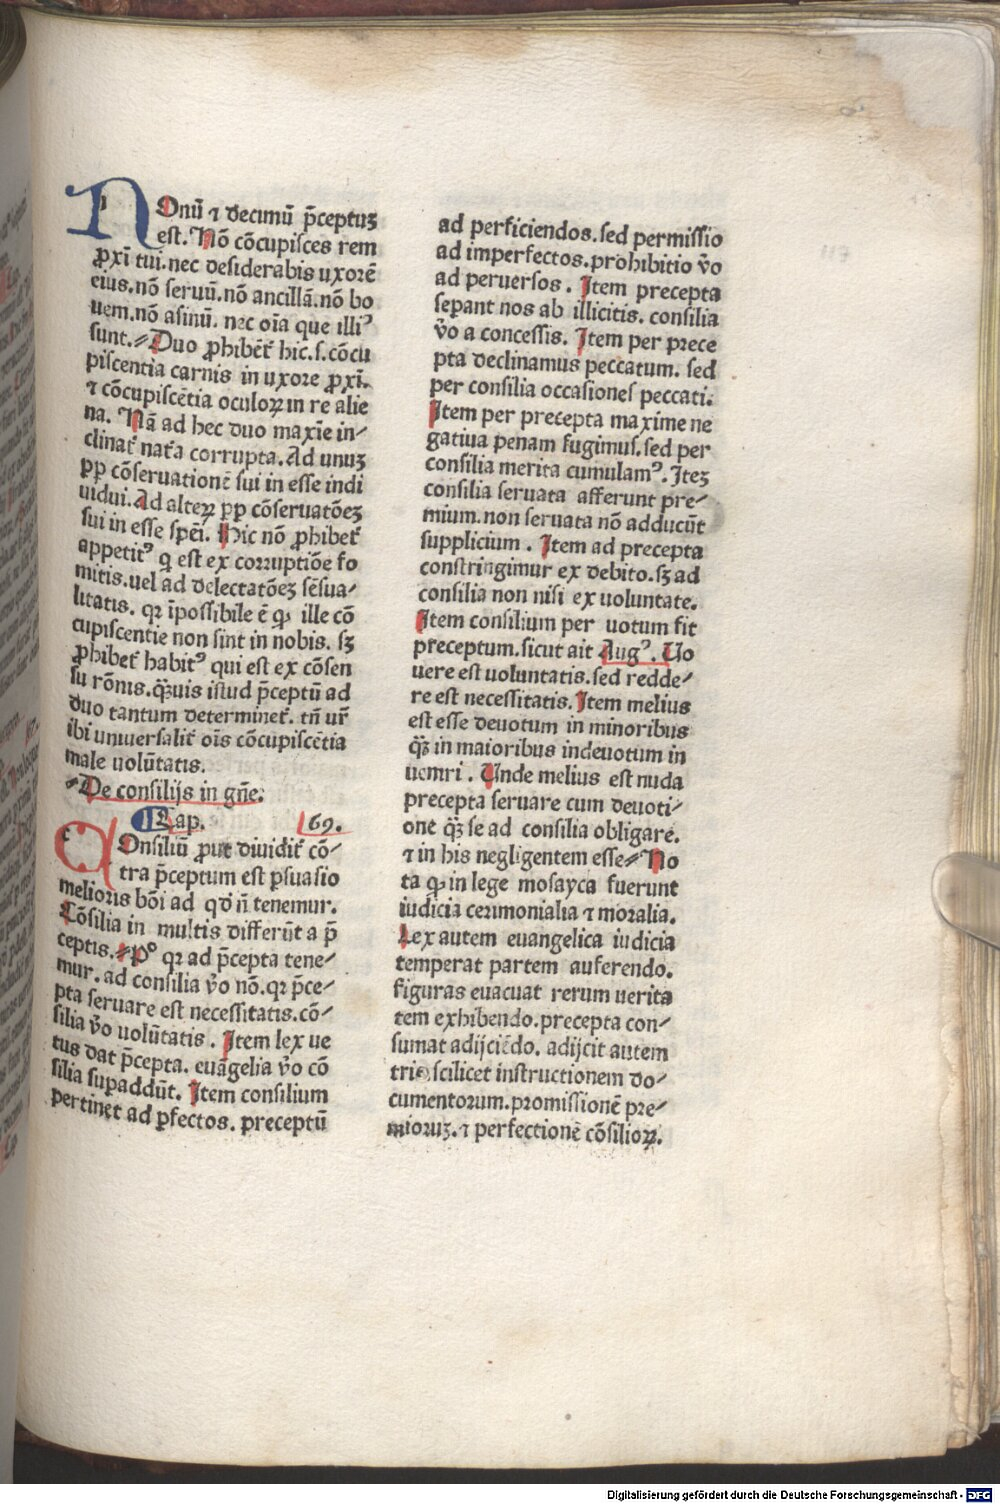 NOnū ⁊ decimū p̄ceptuꝫ
est. Nō cōcupisces rem
ꝓxī tui. nec desiderabis uxorē
eius. nō seruū. nō ancillā. nō bo
uem. nō asinū. nec oīa que illi⁹
sunt. Duo ꝓhibēt᷑ hic. s. cōcu
piscentia carnis in uxore ꝓxī.
⁊ cōcupiscētia oculoꝝ in re alie
na. Nā ad hec duo maxīe in-
clinat᷑ nat᷑a corrupta. Ad unuꝫ
ꝓp cōseruationē sui in esse indi
uidui. Ad alteꝝ ꝓp cōseruatōeꝫ
sui in esse spēi. Hic nō ꝓhibet᷑
appetit⁹ q est ex corruptiōe fo
mitis. uel ad delectatōeꝫ sēsua-
litatis. qꝛ īpossibile ē qꝫ ille cō
cupiscentie non sint in nobis. sꝫ
ꝓhibet᷑ habit⁹ qui est ex cōsen
su rōnis. qꝫuis istud p̄ceptū ad
duo tantum determinet᷑. tn̄ ur̄
ibi uniuersalit᷑ oīs cōcupiscētia
male uolūtatis.
De consilijs in gn̄e.
Cap. 69.
COnsiliū ꝓut diuidit᷑ cō-
tra p̄ceptum est ꝑsuasio
melioris bōi ad qd ñ tenemur.
Cōsilia in multis differūt a p̄
ceptis. pº qꝛ ad p̄cepta tene-
mur. ad consilia v̄o nō. qꝛ p̄ce-
pta seruare est necessitatis. cō-
silia v̄o uolūtatis. Item lex ue
tus dat p̄cepta. euāgelia v̄o cō
silia supaddūt. Item consilium
pertinet ad ꝑfectos. preceptū
ad perficiendos. sed permissio
ad imperfectos. prohibitio v̄o
ad peruersos. Item precepta
seꝑant nos ab illicitis. consilia
v̄o a concessis. Item per prece
pta declinamus peccatum. sed
per consilia occasiones peccati.
Item per precepta maxime ne
gatiua penam fugimus. sed per
consilia merita cumulam⁹. Iteꝫ
consilia seruata afferunt pre-
mium. non seruata nō adducūt
supplicium. Item ad precepta
constringimur ex debito. sꝫ ad
consilia non nisi ex uoluntate.
Item consilium per uotum fit
preceptum. sicut ait Aug⁹. Uo
uere est uoluntatis. sed redde-
re est necessitatis. Item melius
est esse deuotum in minoribus
qꝫ in maioribus indeuotum in
uemri. Unde melius est nuda
precepta seruare cum deuoti-
one qꝫ se ad consilia obligare.
⁊ in his negligentem esse. No
ta qꝫ in lege mosayca fuerunt
iudicia cerimonialia ⁊ moralia.
Lex autem euangelica iudicia
temperat partem auferendo.
figuras euacuat rerum uerita
tem exhibendo. precepta con-
sumat adijciēdo. adijcit autem
tria scilicet instructionem do-
cumentorum. promissionē pre-
mioruꝫ. ⁊ perfectionē cōsilioꝝ.
Digitalisierung gefördert durch die Deutsche Forschungsgemeinschaft - DFG